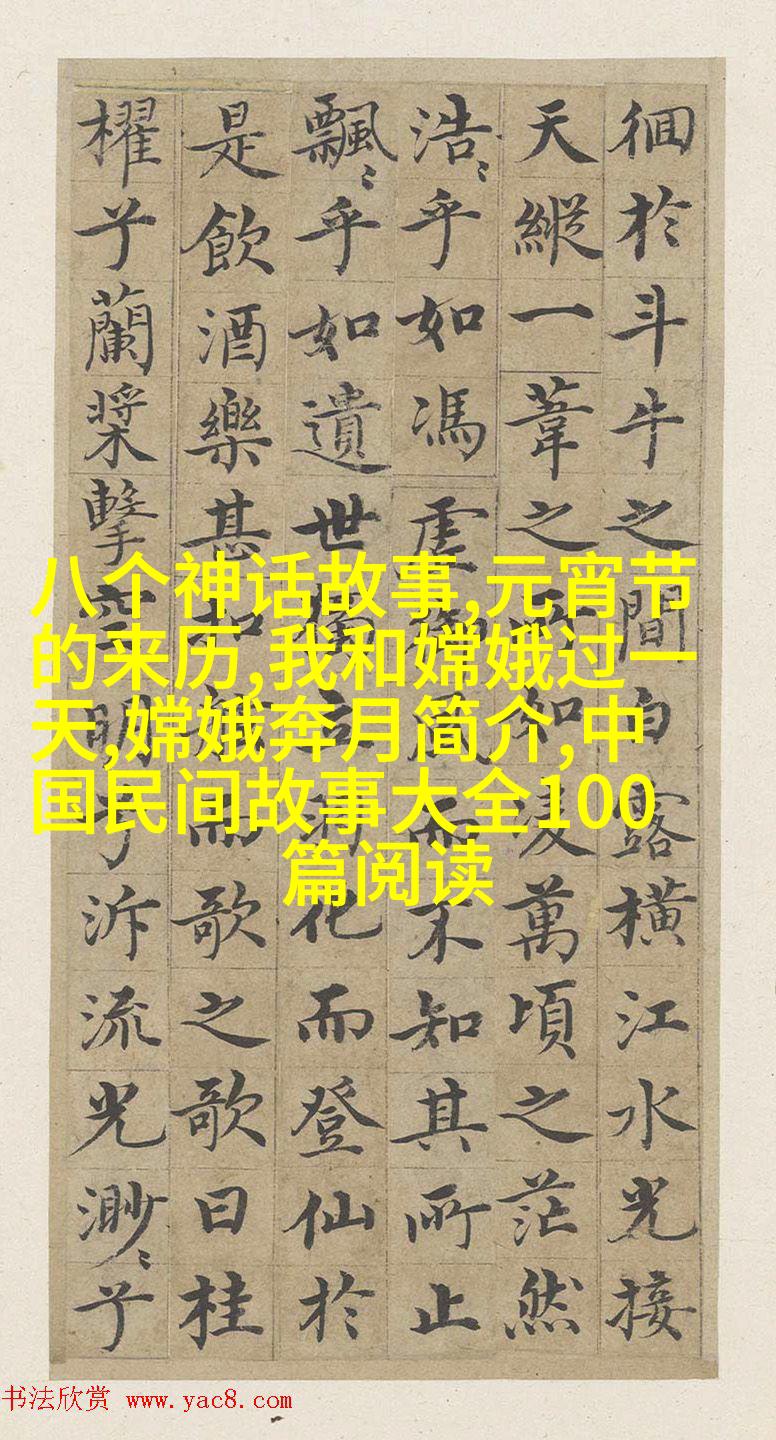 徊於斗牛之間白露橫江水光接
天縱一葦之所如凌萬頃之茫然
浩〻乎如馮虛御風而不知其所止
飄〻乎如遺世獨立羽化而登仙於
是飲酒樂甚扣舷而歌之歌曰桂
櫂兮蘭槳擊空明兮泝流光渺〻兮
八个神话故事,元宵节
的来历,我和嫦娥过一
天,嫦娥奔月简介,中
国民间故事大全100
篇阅读
书法欣赏 www.yac8.com